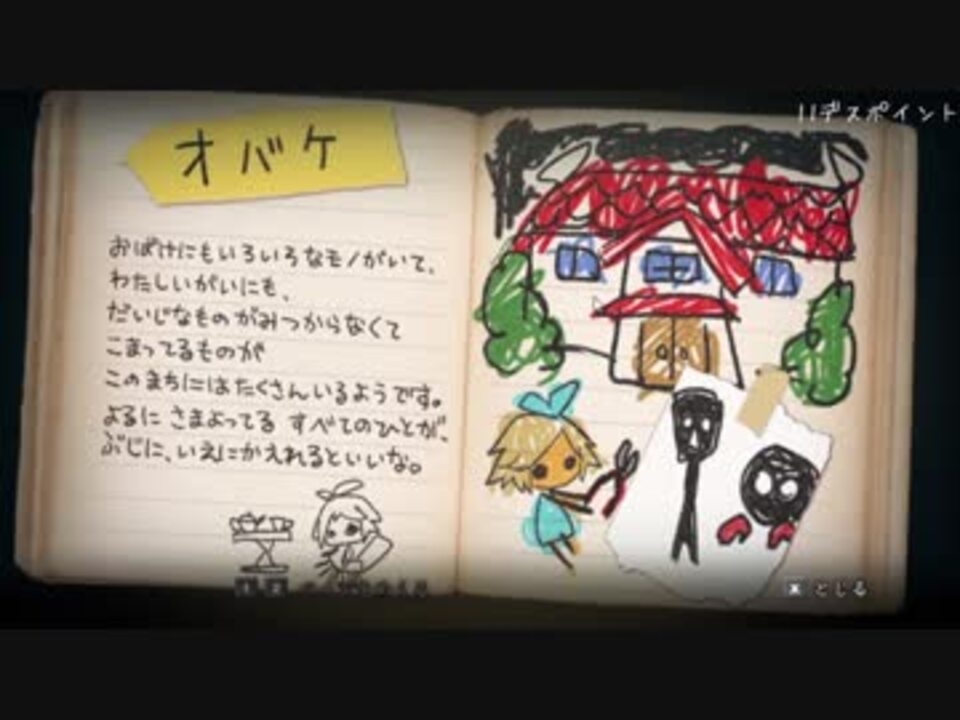 11デスポイント
オバケ
おばけにもいろいろなモノがいて、
わたしいがいにも、
だいじなものがみつからなくて
こまってるものが
このまちにはたくさんいるようです。
よるに さまよってる すべてのひとが、
ぶじに、いえにかえれるといいな。
とじる